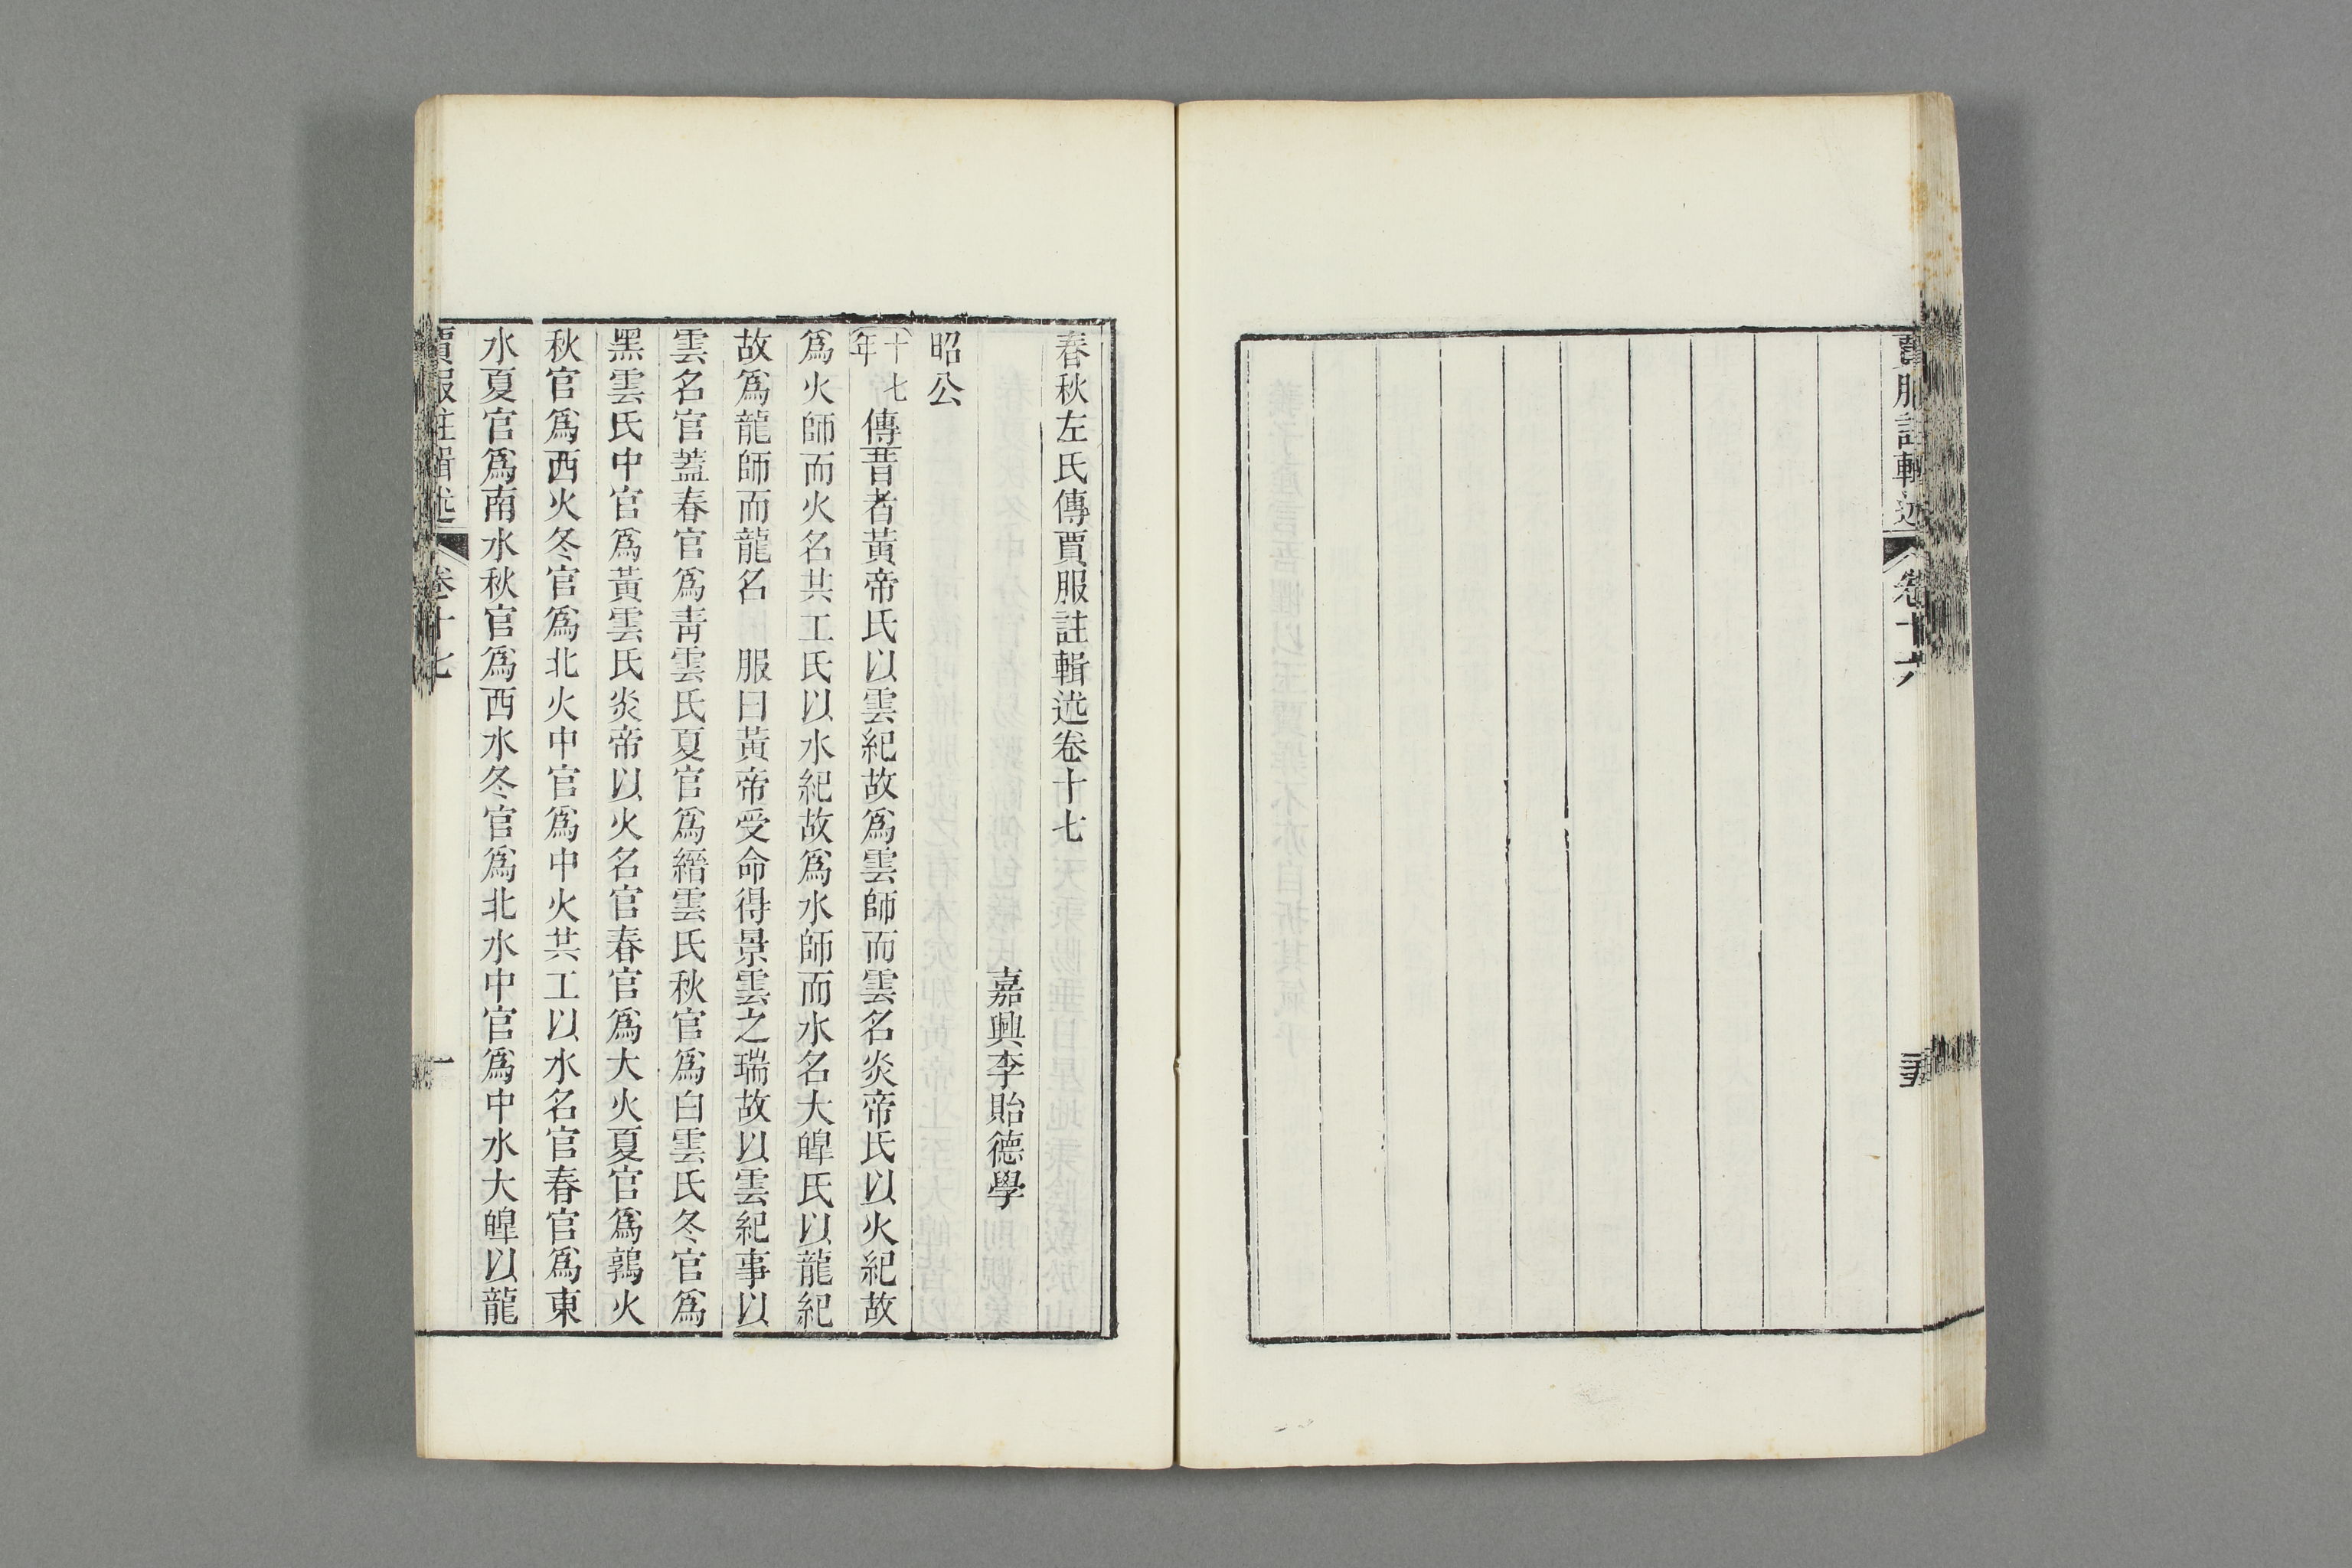 賈服註輯述 卷十六
春秋左氏傳賈服註輯述卷十七
嘉興李貽德學
昭公
十七年 傳昔者黃帝氏以雲紀故爲雲師而雲名炎帝氏以火紀故
爲火師而火名共工氏以水紀故爲水師而水名大皞氏以龍紀
故爲龍師而龍名 服曰黃帝受命得景雲之瑞故以雲紀事以
雲名官蓋春官爲靑雲氏夏官爲縉雲氏秋官爲白雲氏冬官爲
黑雲氏中官爲黃雲氏炎帝以火名官春官爲大火夏官爲鶉火
秋官爲西火冬官爲北火中官爲中火共工以水名官春官爲東
水夏官爲南水秋官爲西水冬官爲北水中官爲中水大皞以龍
賈服註輯述 卷十七 一